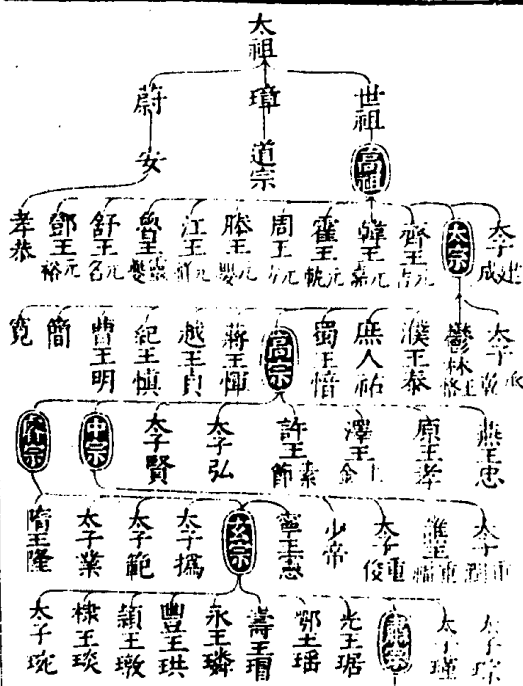 太祖
世祖
璋
蔚
高祖
道宗
安
太子建成
太宗
齊王元吉
韓王元嘉
霍王元軌
周王元方
滕王元嬰
江王元祥
魯王靈夔
舒王元名
鄧王元裕
孝恭
太子承乾
鬱林王恪
濮王泰
庶人祐
蜀王愔
高宗
蔣王惲
越王貞
紀王慎
曹王明
簡
寬
燕王忠
原王孝
澤王上金
許王素節
太子弘
太子賢
中宗
睿宗
太子重潤
譙王重福
太子重俊
少帝
寧王憲
玄宗
太子撝
太子範
太子業
隋王隆
太子琮
太子瑾
肅宗
光王琚
鄂王瑤
壽王瑁
永王璘
豐王珙
頴王璬
棣王琰
太子琬